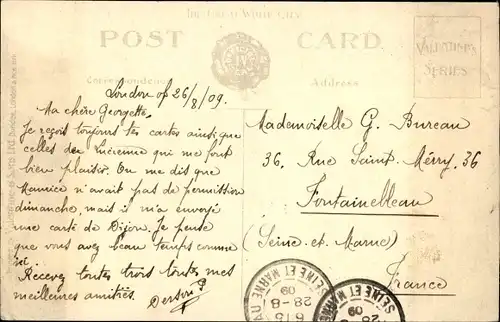 The Great White City
POST CARD
VALENTINE'S
SERIES
Correspondence
Address
London of 26/8/09.
Ma chère Georgette,
Je reçois toujours tes cartes ainsi que
celles de Lucienne qui me font
bien plaisir. On me dis que
Maurice n'avait pas de permission
dimanche, mais il m'a envoyé
une carte de Dijon. Je pense
que vous avez beau temps comme
ici
Recevez toutes trois toutes mes
meilleures amitiés.
Mademoiselle G. Bureau
36, Rue Saint-Merry, 36
Fontainebleau
(Seine-et-Marne)
France
SEINE ET MARNE
6 15
28-8
09
SEINE ET MARNE
09